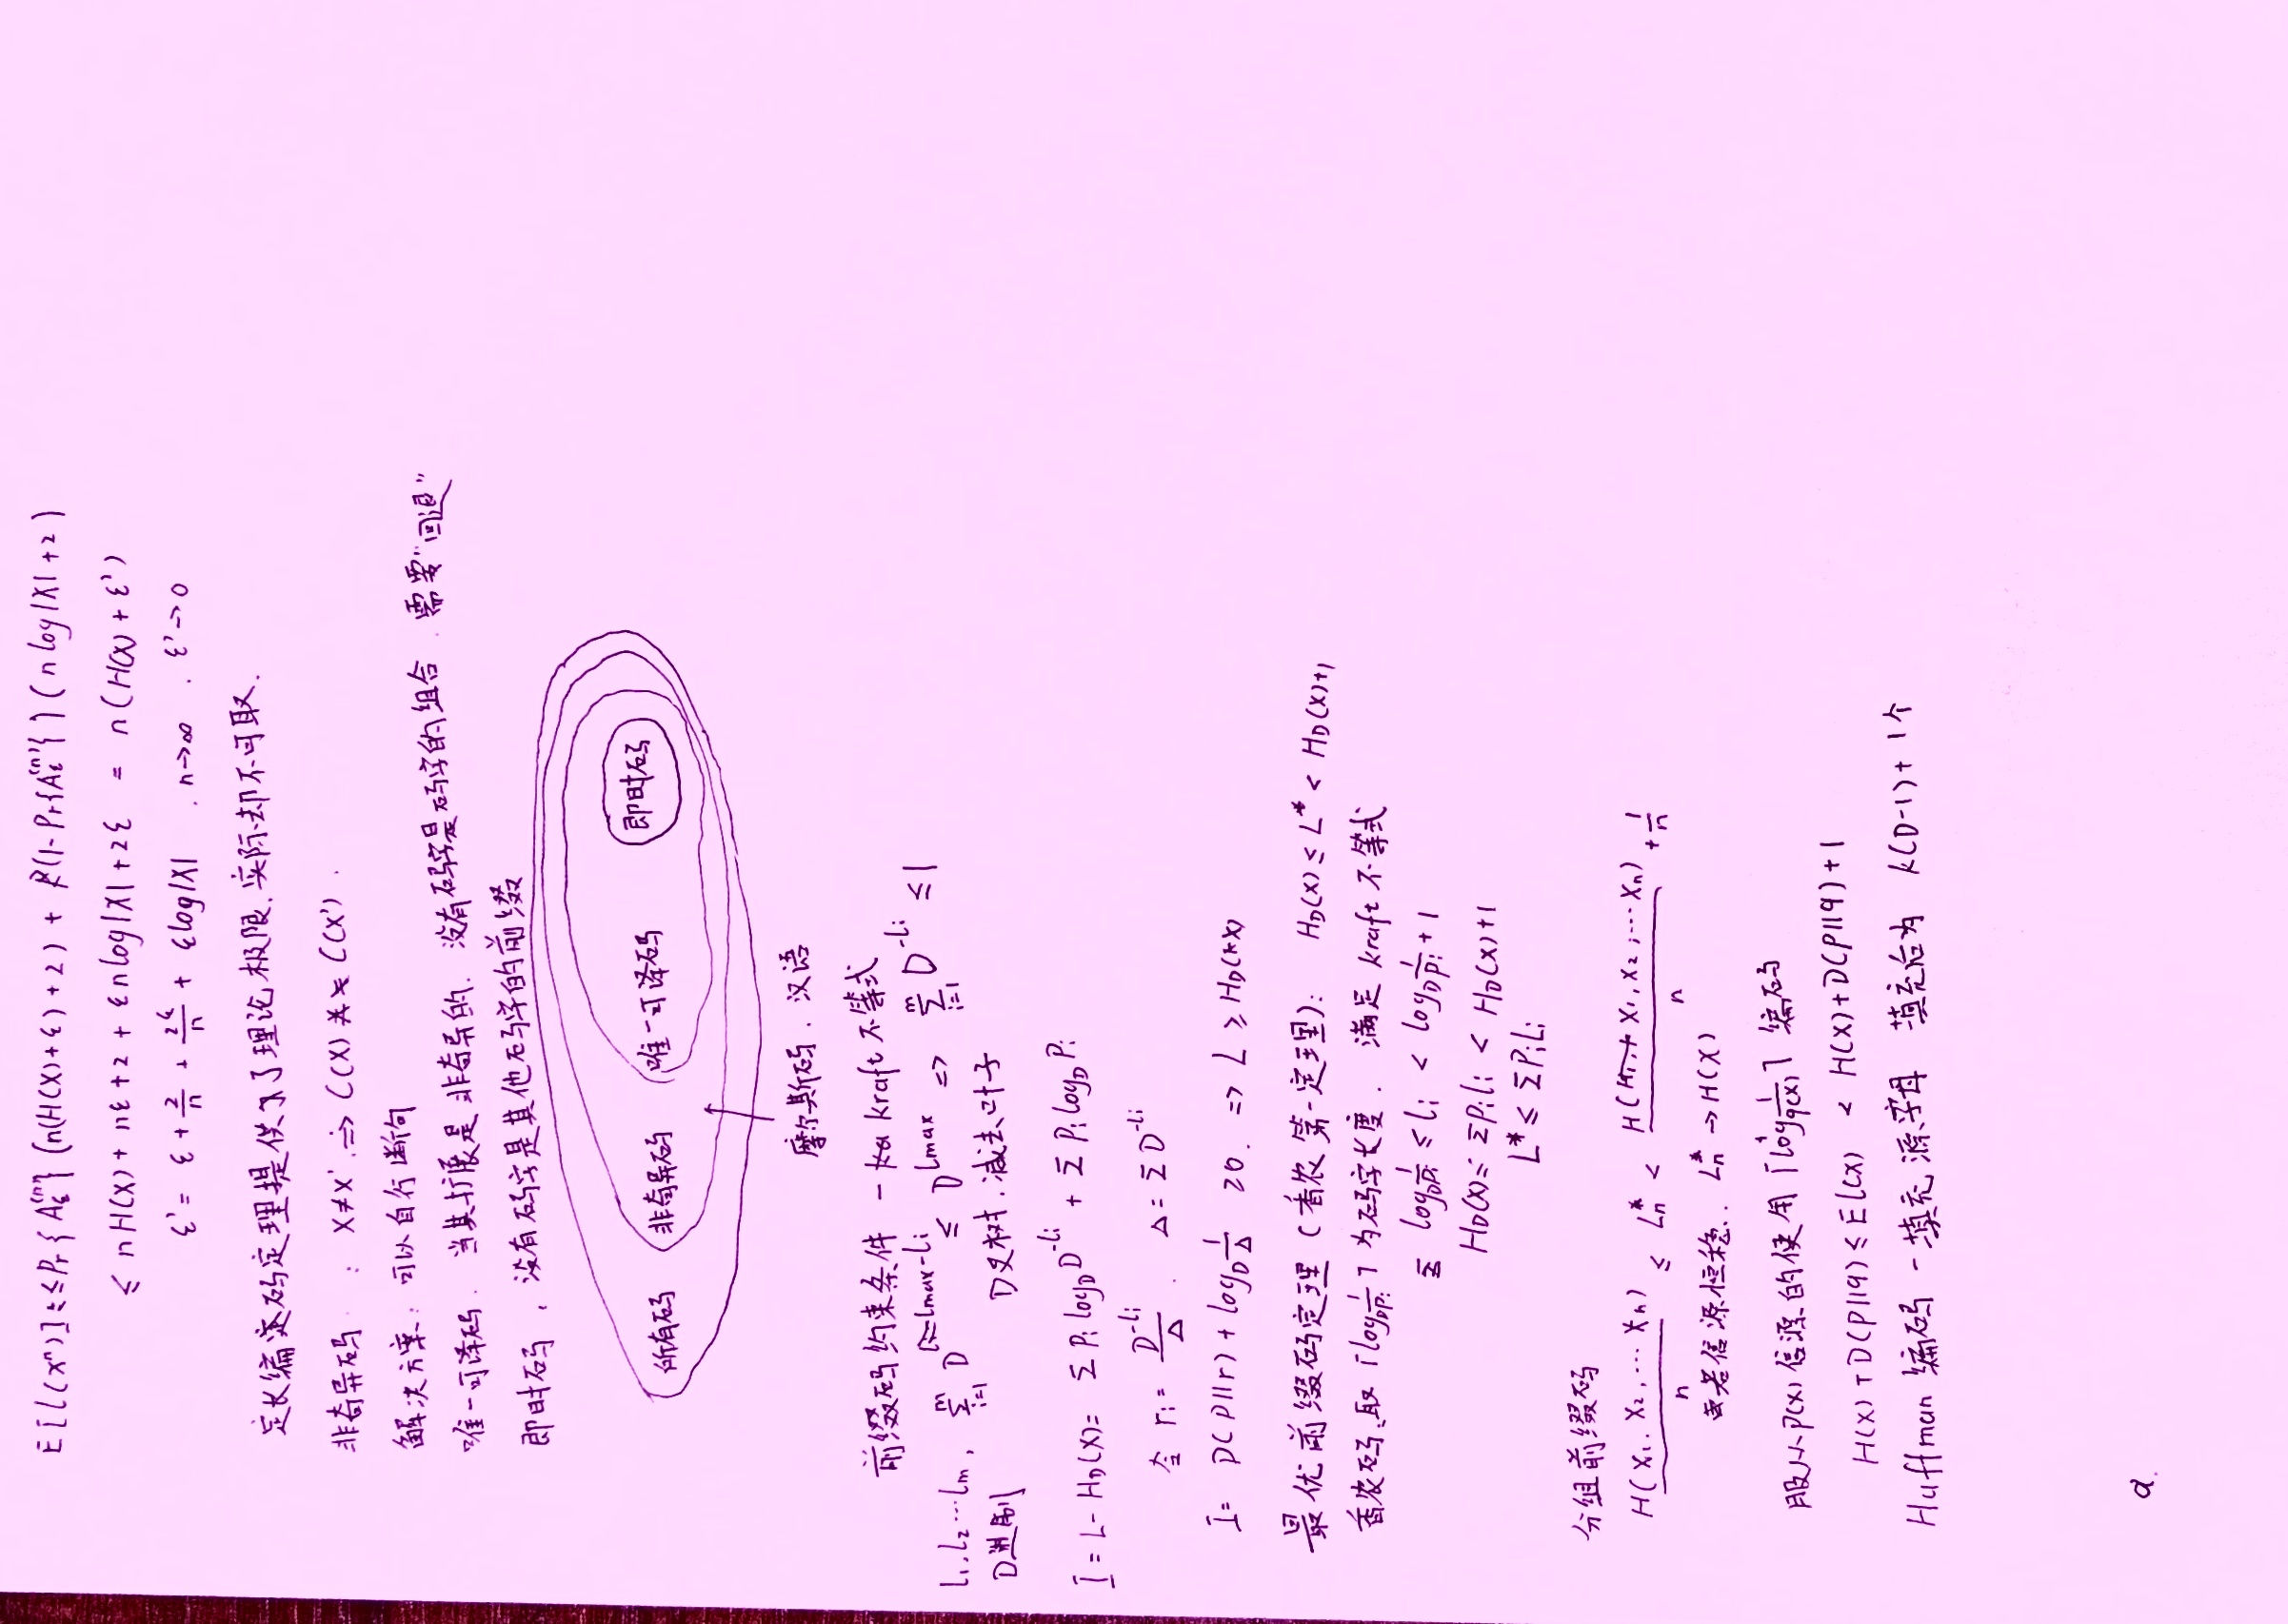 E[l(xⁿ)] ≤ Pr{A_ε^(n)} (n(H(X)+ε)+2) + (1-Pr{A_ε^(n)}) (n log|X|+2)
≤ nH(X) + nε+2 + εn log|X| + 2ε = n(H(X)+ε')
ε' = ε + 2/n + 2ε/n + εlog|X| . n→∞ . ε'→0
定长编码定理提供了理论极限.实际却不可取.
非奇异码 : X≠X' ⇒ C(X) ≠ C(X') .
解决方案: 可以自行断句
唯一可译码. 当其扩展是非奇异的. 没有码字是码字的组合. 需要“回退”
即时码 , 没有码字是其他码字的前缀
所有码 非奇异码 唯一可译码 即时码
摩尔斯码. 汉语
前缀码约束条件 - kraft 不等式
l₁,l₂…lm, Σ_{i=1}^{m} D^{lmax-li} ≤ D^{lmax} => Σ_{i=1}^{m} D^{-li} ≤ 1
D进制 D叉树.减去叶子
I = L - H_D(X) = Σ Pi log_D D^{-li} + Σ Pi log_D Pi
令 ri = D^{-li}/Δ . Δ = Σ D^{-li}
I = D(P||r) + log_D 1/Δ ≥0. => L ≥ H_D(X)
最优前缀码定理(香农第一定理): H_D(X) ≤ L* < H_D(X)+1
香农码.取⌈log_D 1/Pi⌉为码字长度. 满足 kraft 不等式
log_D 1/Pi ≤ li < log_D 1/Pi + 1
H_D(X) ≤ ΣPili < H_D(X)+1
L* ≤ ΣPiLi
分组前缀码
H(X₁.X₂,…Xn)/n ≤ Ln* < H(X₁,X₂,…Xn)/n + 1/n
若信源恒稳.. Ln* → H(X)
服从P(x)信源的使用⌈log 1/q(x)⌉编码
H(X)+D(P||q) ≤ El(X) < H(X)+D(P||q)+1
Huffman 编码 - 填充源字母 填充后为 k(D-1)+1个
a.